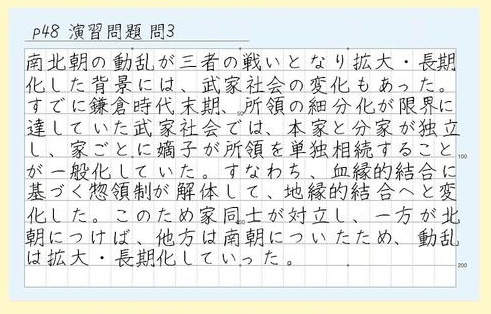 p48 演習問題 問3
南北朝の動乱が三者の戦いとなり拡大・長期
化した背景には、武家社会の変化もあった。
すでに鎌倉時代末期、所領の細分化が限界に
達していた武家社会では、本家と分家が独立
し、家ごとに嫡子が所領を単独相続すること
が一般化していた。すなわち、血縁的結合に
基づく惣領制が解体して、地縁的結合へと変
化した。このため家同士が対立し、一方が北
朝につけば、他方は南朝についたため、動乱
は拡大・長期化していった。
100
200